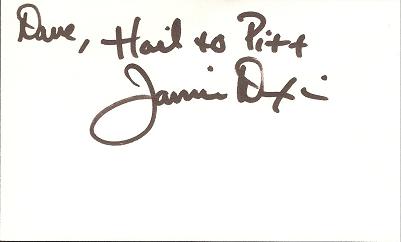 Dave, Hail to Pitt
Jamie Dixon